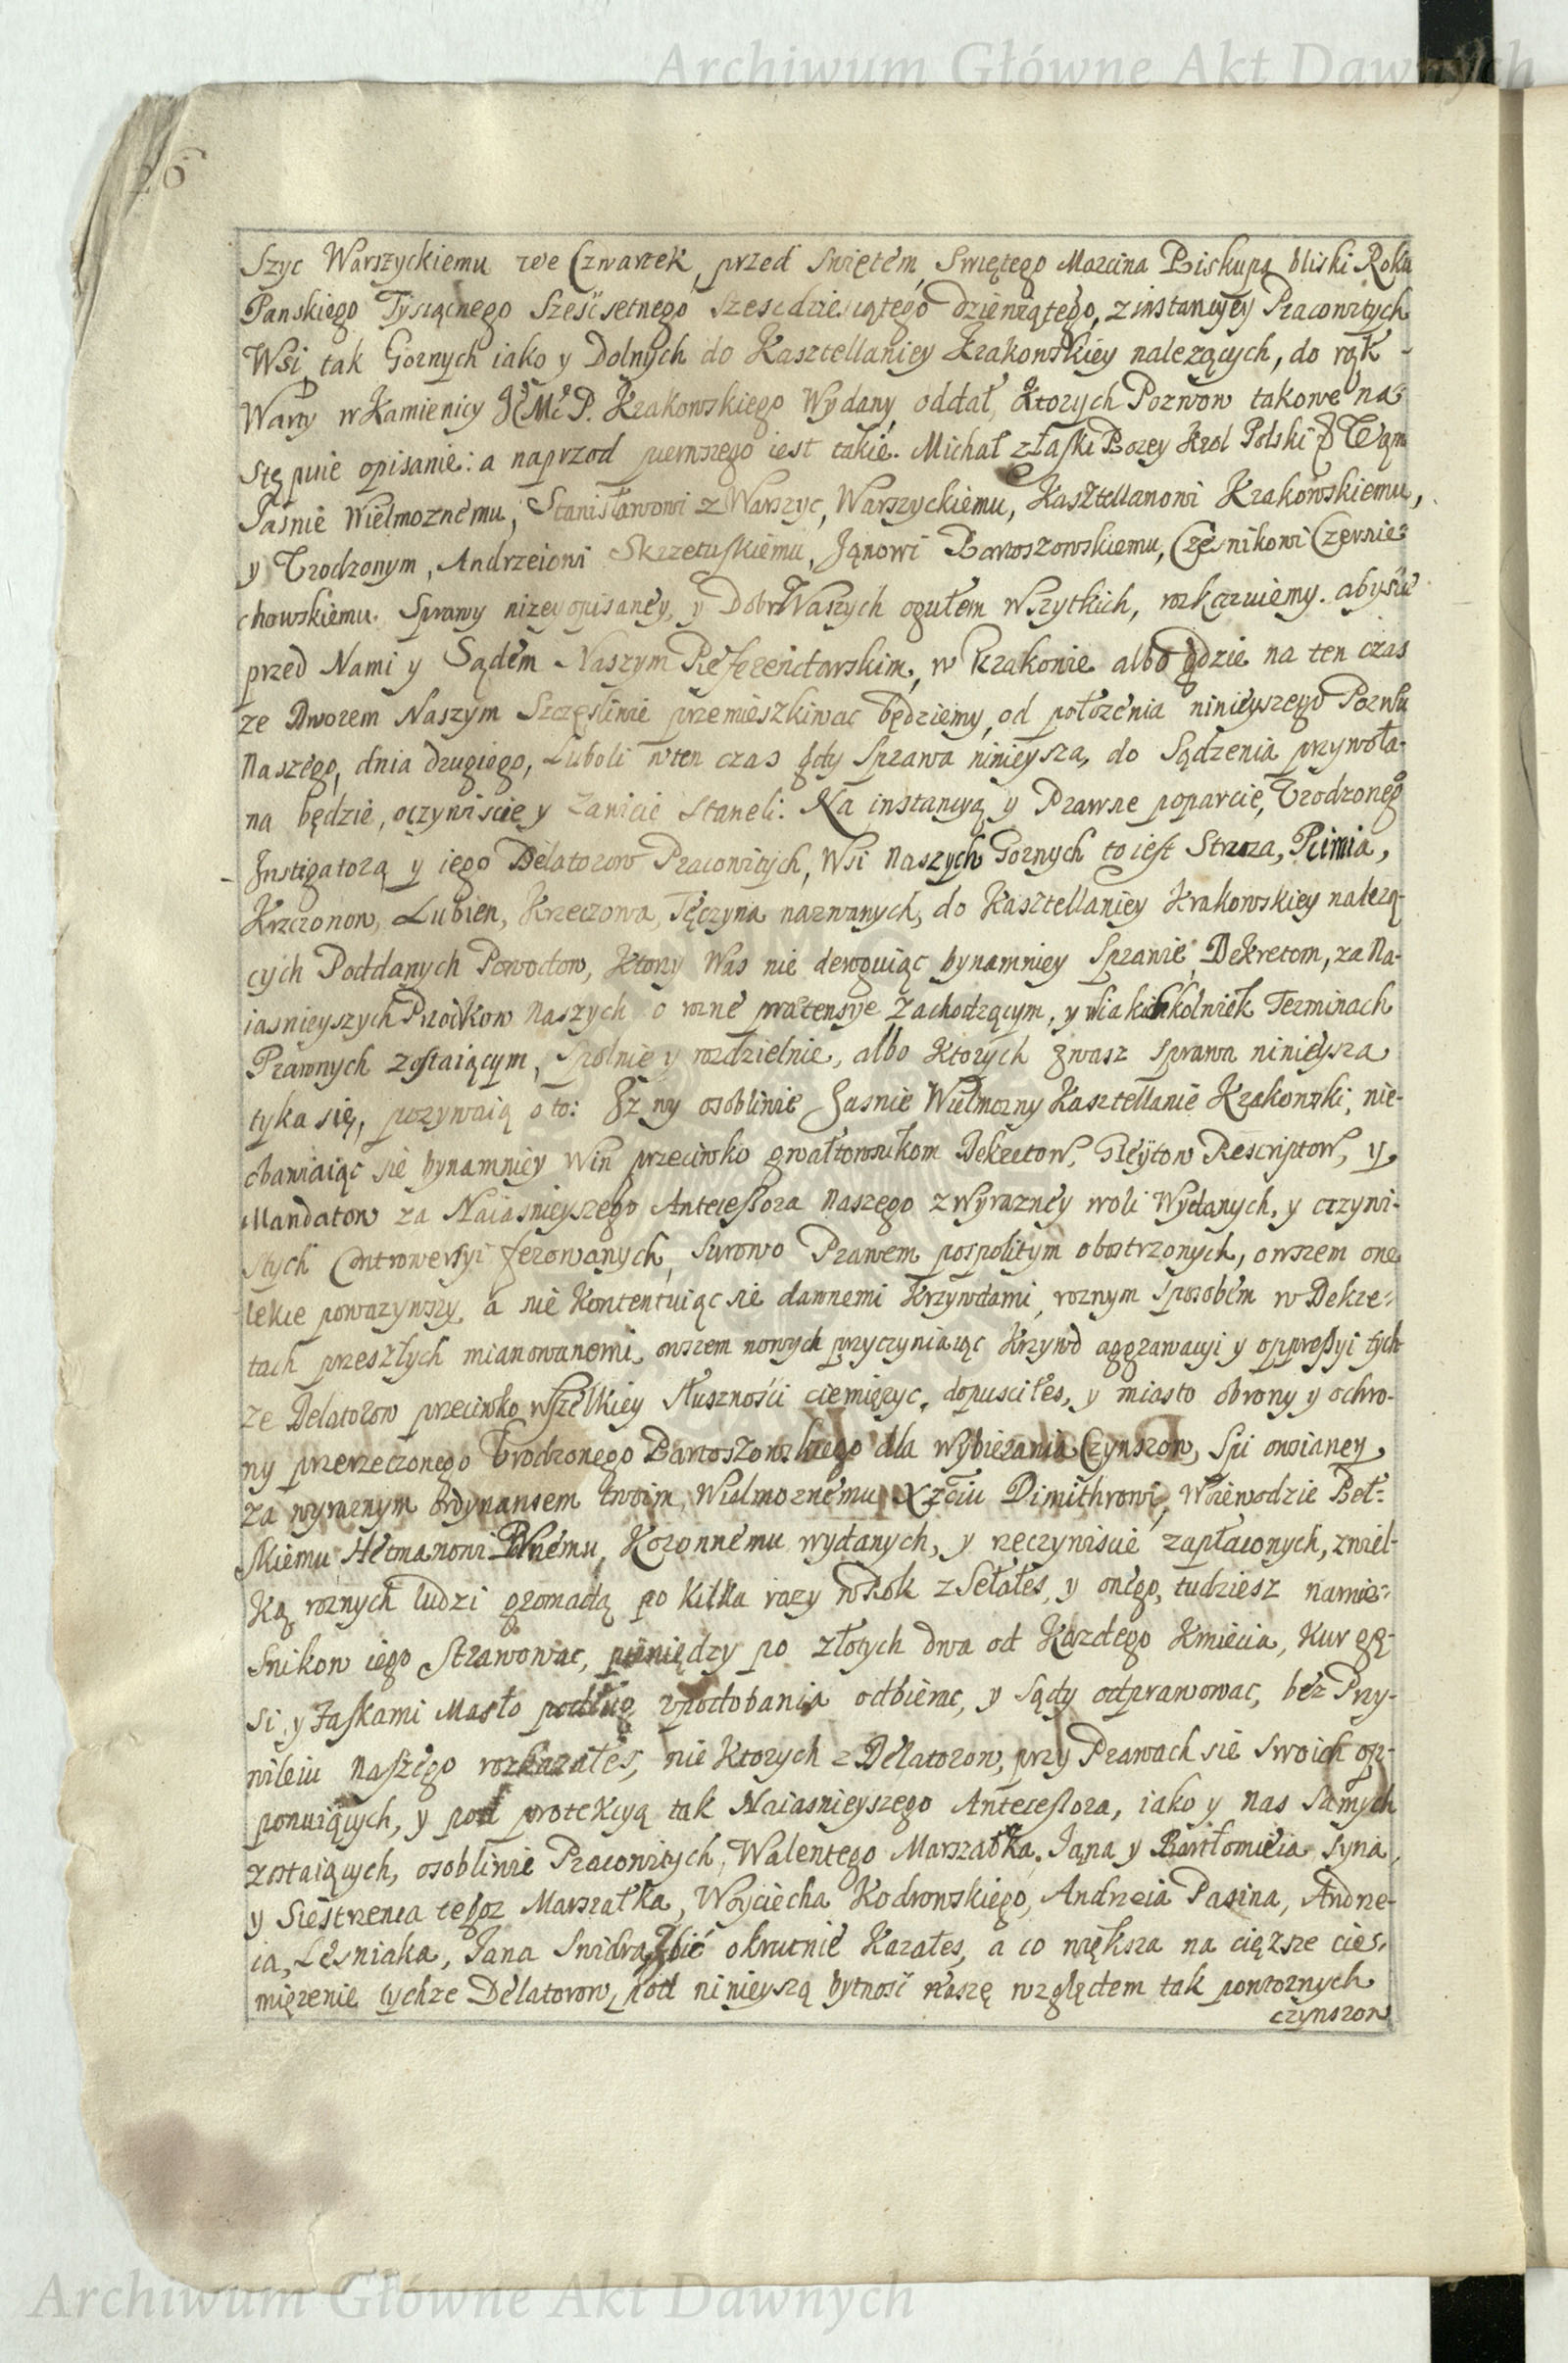 Archiwum Główne Akt Dawnych
26
Szyc Warszyckiemu we Czwartek, przed Swiętem, Swiętego Marcina Biskupa bliski Roku
Panskiego Tysiącnego Sześsetnego Szescdziesiątego Dziewiątego, z instancyey Pracowitych
Wsi tak Gornych iako y Dolnych do Kasztellaniey Krakowskiey nalezących, do rąk
Warty w Kamienicy JeMci P. Krakowskiego Wydany oddał, Ktorych Pozwow takowe na-
stępuie opisanie: a naprzod pierwszego iest takie. Michał z łaski Bozey Krol Polski Wam
Jasnie Wielmoznemu, Stanisławowi z Warszyc, Warszyckiemu, Kasztellanowi Krakowskiemu,
y Urodzonym, Andrzeiowi Skrzetuskiemu, Janowi Bartoszowskiemu, Czesnikowi Czernie-
chowskiemu. Sprawy nizey opisaney, y Dobr Waszych ogułem Wszytkich, rozkazuiemy. abyscie
przed Nami y Sądem Naszym Referendarskim, w Krakowie albo gdzie na ten czas
ze Dworem Naszym Szczęsliwie przemieszkiwac będziemy, od połozenia ninieyszego Pozwu
Naszego, dnia drugiego, Luboli w ten czas gdy Sprawa ninieysza, do Sądzenia przywoła-
na będzie, oczywiscie y zawicie staneli: Na instancyą y Prawne poparcie, Urodzonego
Instigatora y iego Delatorow Pracowitych, Wsi Naszych Gornych to iest Stroza, Pcimia,
Krzczonow, Lubien, Krzeczowa, Tęczyna nazwanych, do Kasztellaniey Krakowskiey nalezą-
cych Poddanych Powodow, Ktorzy Was nie deroguiąc bynamniey Sprawie, Dekretom, za Na-
iasnieyszych Przodkow Naszych o rozne praetensye zachodzącym, y w iakichkolwiek Terminach
Prawnych zostaiącym, spolnie y rozdzielnie, albo Ktorych zwasz sprawa ninieysza
tyka się, pozywaią o to: Iz wy osobliwie Jasnie Wielmozny Kasztellanie Krakowski, nie-
obawiaiąc sie bynamniey Win przeciwko gwałtownikom Dekretow, Gleytow Rescriptow, y
Mandatow za Naiasnieyszego Antecessora Naszego z wyrazney woli Wydanych, y oczywi-
stych Controwersyi ferowanych, surowo Prawem pospolitym obostrzonych, owszem one
lekce powazywszy, a nie Kontentuiąc sie dawnemi Krzywdami, roznym sposobem w Dekre-
tach przeszłych mianowanemi, owszem nowych przyczyniaiąc Krzywd aggrawacyi y oppressyi tych
ze Delatorow przeciwko wszelkiey słusznosci ciemięzyc, dopusciłes, y miasto obrony y ochro-
ny przerzeczonego Urodzonego Bartoszowskiego dla wybierania Czynszow, Spi owsianey
za wyraznym Ordynansem twoim, Wielmoznemu Xzęciu Dimithrowi, Woiewodzie Beł-
skiemu Hetmanowi Plnemu, Koronnemu wydanych, y rzeczywiscie zapłaconych, z wiel-
ką roznych ludzi gromadą po kilka razy w Rok zsełałes, y onego, tudziesz namie-
snikow iego strawowac, pieniędzy po złotych dwa od Kazdego Kmiecia, Kur gę-
si, y Faskami Masło podług upodobania odbierac, y sądy odprawowac, bez Przy-
wileiu Naszego rozkazałes, nie Ktorych z Delatorow, przy Prawach sie swoich op-
ponuiących, y pod protekcyą tak Naiasnieyszego Antecessora, iako y nas samych
zostaiących, osobliwie Pracowitych, Walentego Marszałka, Jana y Bartłomieia syna,
y Siestrzenca tegoz Marszałka, Woyciecha Kodrowskiego, Andrzeia Pasina, Andrze-
ia, Lesniaka, Jana Snidra, zbić okrutnie Kazałes, a co większa na cięzsze cie-
mięzenie tychze Delatorow, pod ninieyszą bytnosc naszę względem tak powtornych
czynszow
Archiwum Główne Akt Dawnych